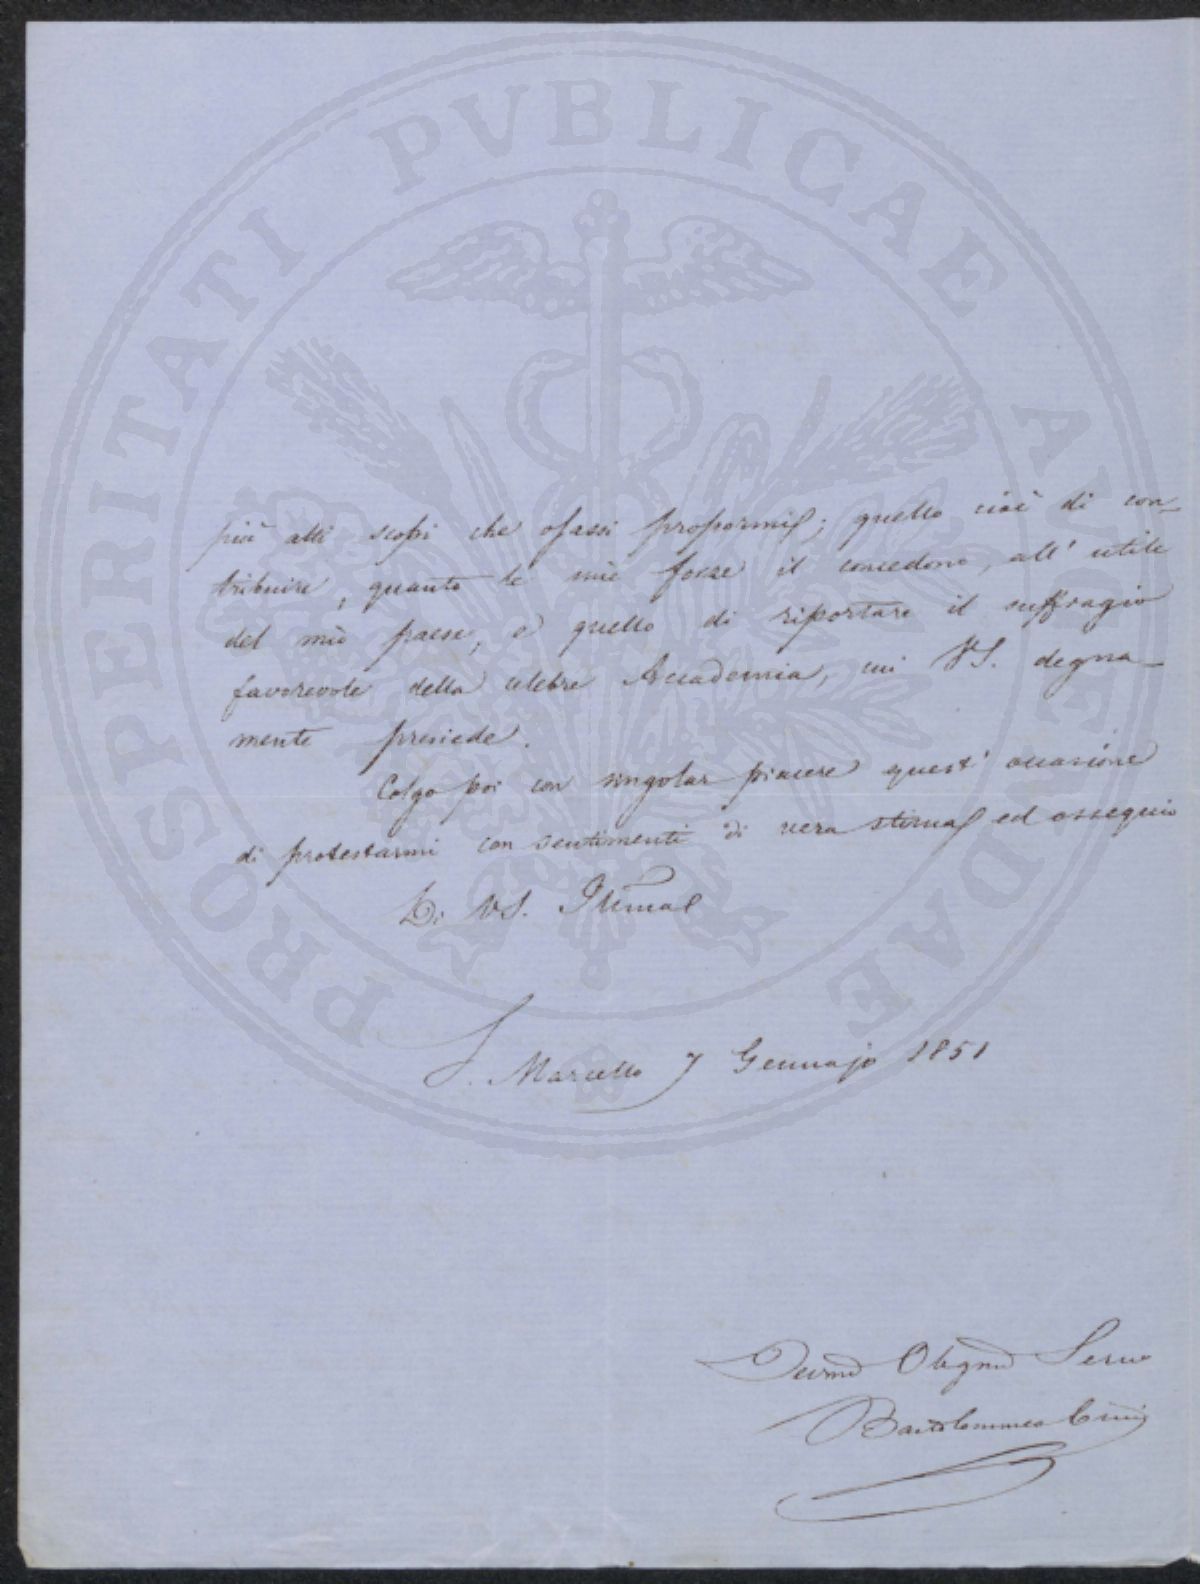 PROSPERITATI PVBLICAE AVGENDAE
più alti scopi che osassi propormi; quello cioè di con-
tribuire, quanto le mie forze il concedono, all' utile
del mio paese, e quello di riportare il suffragio
favorevole della celebre Accademia, cui VS. degna-
mente presiede.
Colgo poi con singolar piacere quest' occasione
di protestarmi con sentimenti di vera stima ed ossequio
Di VS. Illma
S. Marcello 7 Gennajo 1851
Devmo Obgmo Servo
Bartolommeo Cini